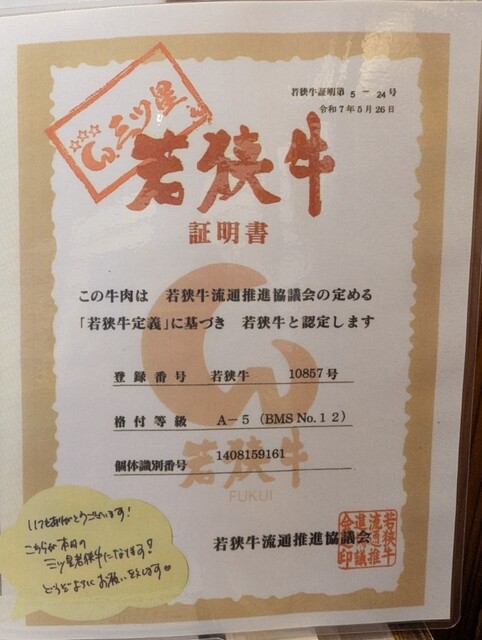 若狭牛証明第 5 − 24 号
令和7年5月26日
三ツ星
若狭牛
証明書
この牛肉は 若狭牛流通推進協議会の定める
「若狭牛定義」に基づき 若狭牛と認定します
登録番号 若狭牛 10857号
格付等級 A−5（BMS No.12）
個体識別番号 1408159161
若狭牛
FUKUI
若狭牛流通推進協議会
若狭牛
流通推
進協議
会会印
いつもありがとうございます!
こちらが本日の
三ツ星若狭牛になります!
どうぞよろしくお願い致します♥